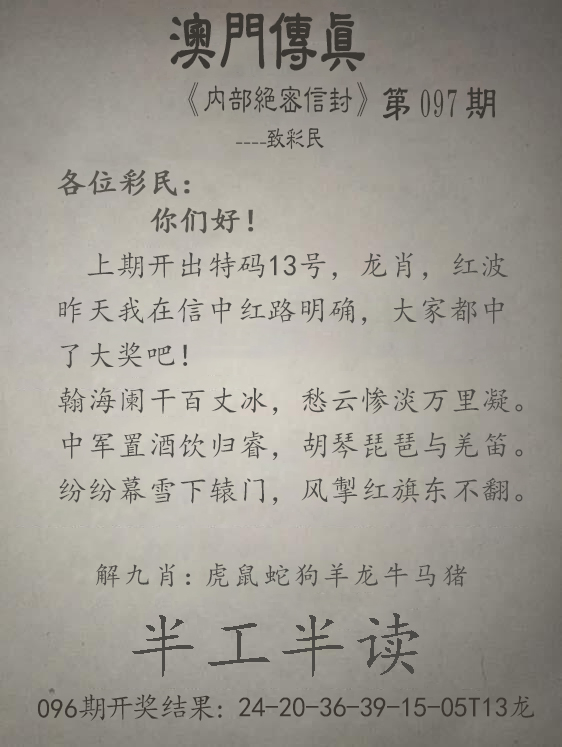 澳門傳真
《内部絕密信封》第097期
----致彩民
各位彩民：
你们好！
上期开出特码13号，龙肖，红波
昨天我在信中红路明确，大家都中
了大奖吧！
翰海阑干百丈冰，愁云惨淡万里凝。
中军置酒饮归睿，胡琴琵琶与羌笛。
纷纷幕雪下辕门，风掣红旗东不翻。
解九肖：虎鼠蛇狗羊龙牛马猪
半工半读
096期开奖结果：24-20-36-39-15-05T13龙